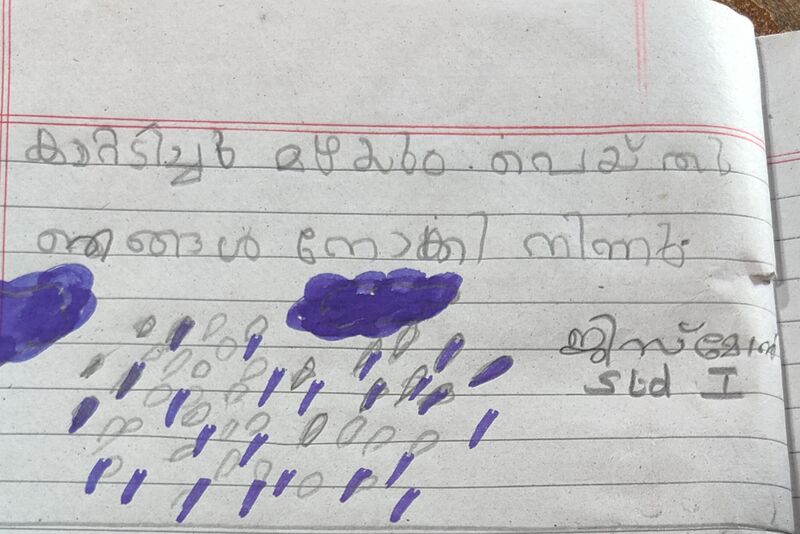 കാറ്റടിച്ചു മഴയും പെയ്തു
ഞങ്ങൾ നോക്കി നിന്നു
ജിസ്മോൻ
Std I